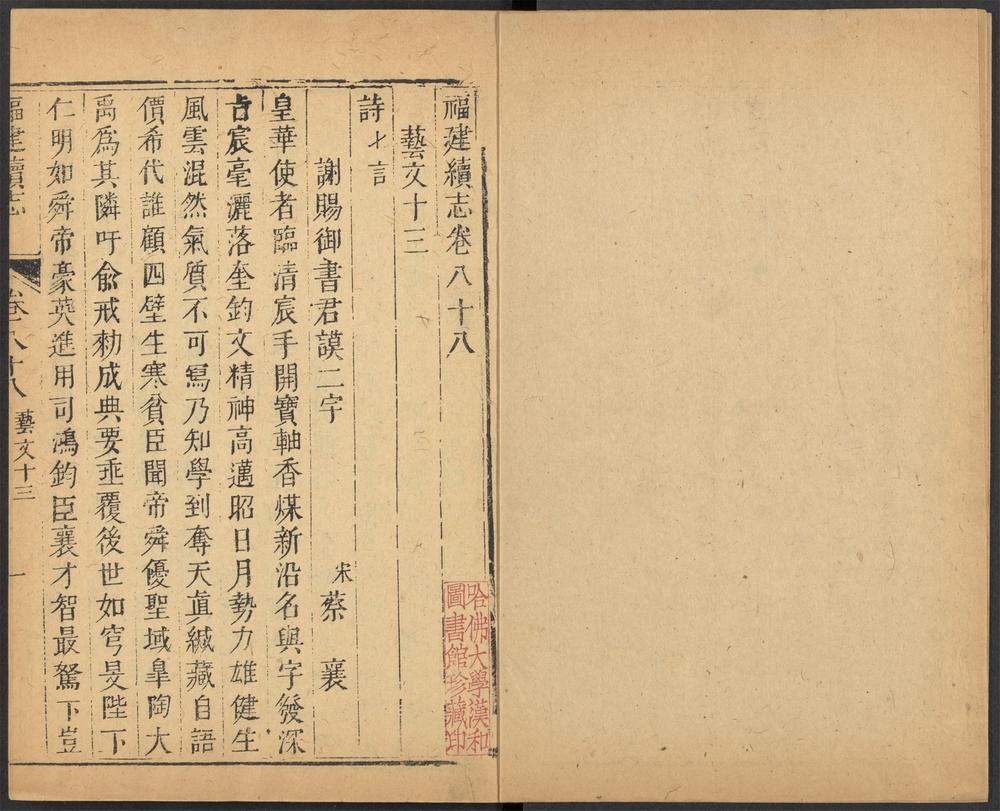 福建續志卷八十八
藝文十三
詩 七言
謝賜御書君謨二字
宋 蔡 襄
皇華使者臨清宸手開寶軸香煤新沿名與字發深
占宸毫灑落奎鈞文精神高邁昭日月勢力雄健生
風雲混然氣質不可寫乃知學到奪天真緘藏自語
價希代誰顧四壁生寒貧臣聞帝舜優聖域臯陶大
禹爲其隣吁俞戒勑成典要垂覆後世如穹旻陛下
仁明如舜帝豪英進用司鴻鈞臣襄才智最駑下豈
福建續志
卷八十八
藝文十三
一
哈佛大學漢和
圖書館珍藏印